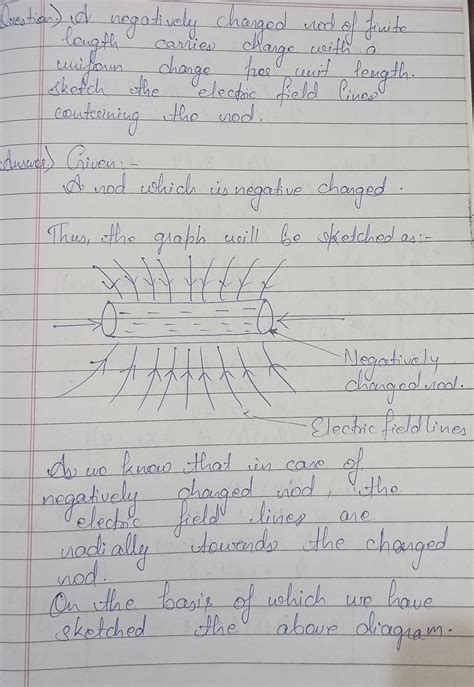 Question) A negatively changed nod of finite
length carries change with a
uniform change per unit length.
sketch the electric field lines
contceining the nod.
Answer) Given:-
A nod which is negative changed.
Thus, the graph will be sketched as:-
Negatively
changed nod.
Electric field lines
As we know that in case of
negatively changed nod, the
electric field lines are
nadially towends the changed
nod.
On the basis of which we have
sketched the above diagram.